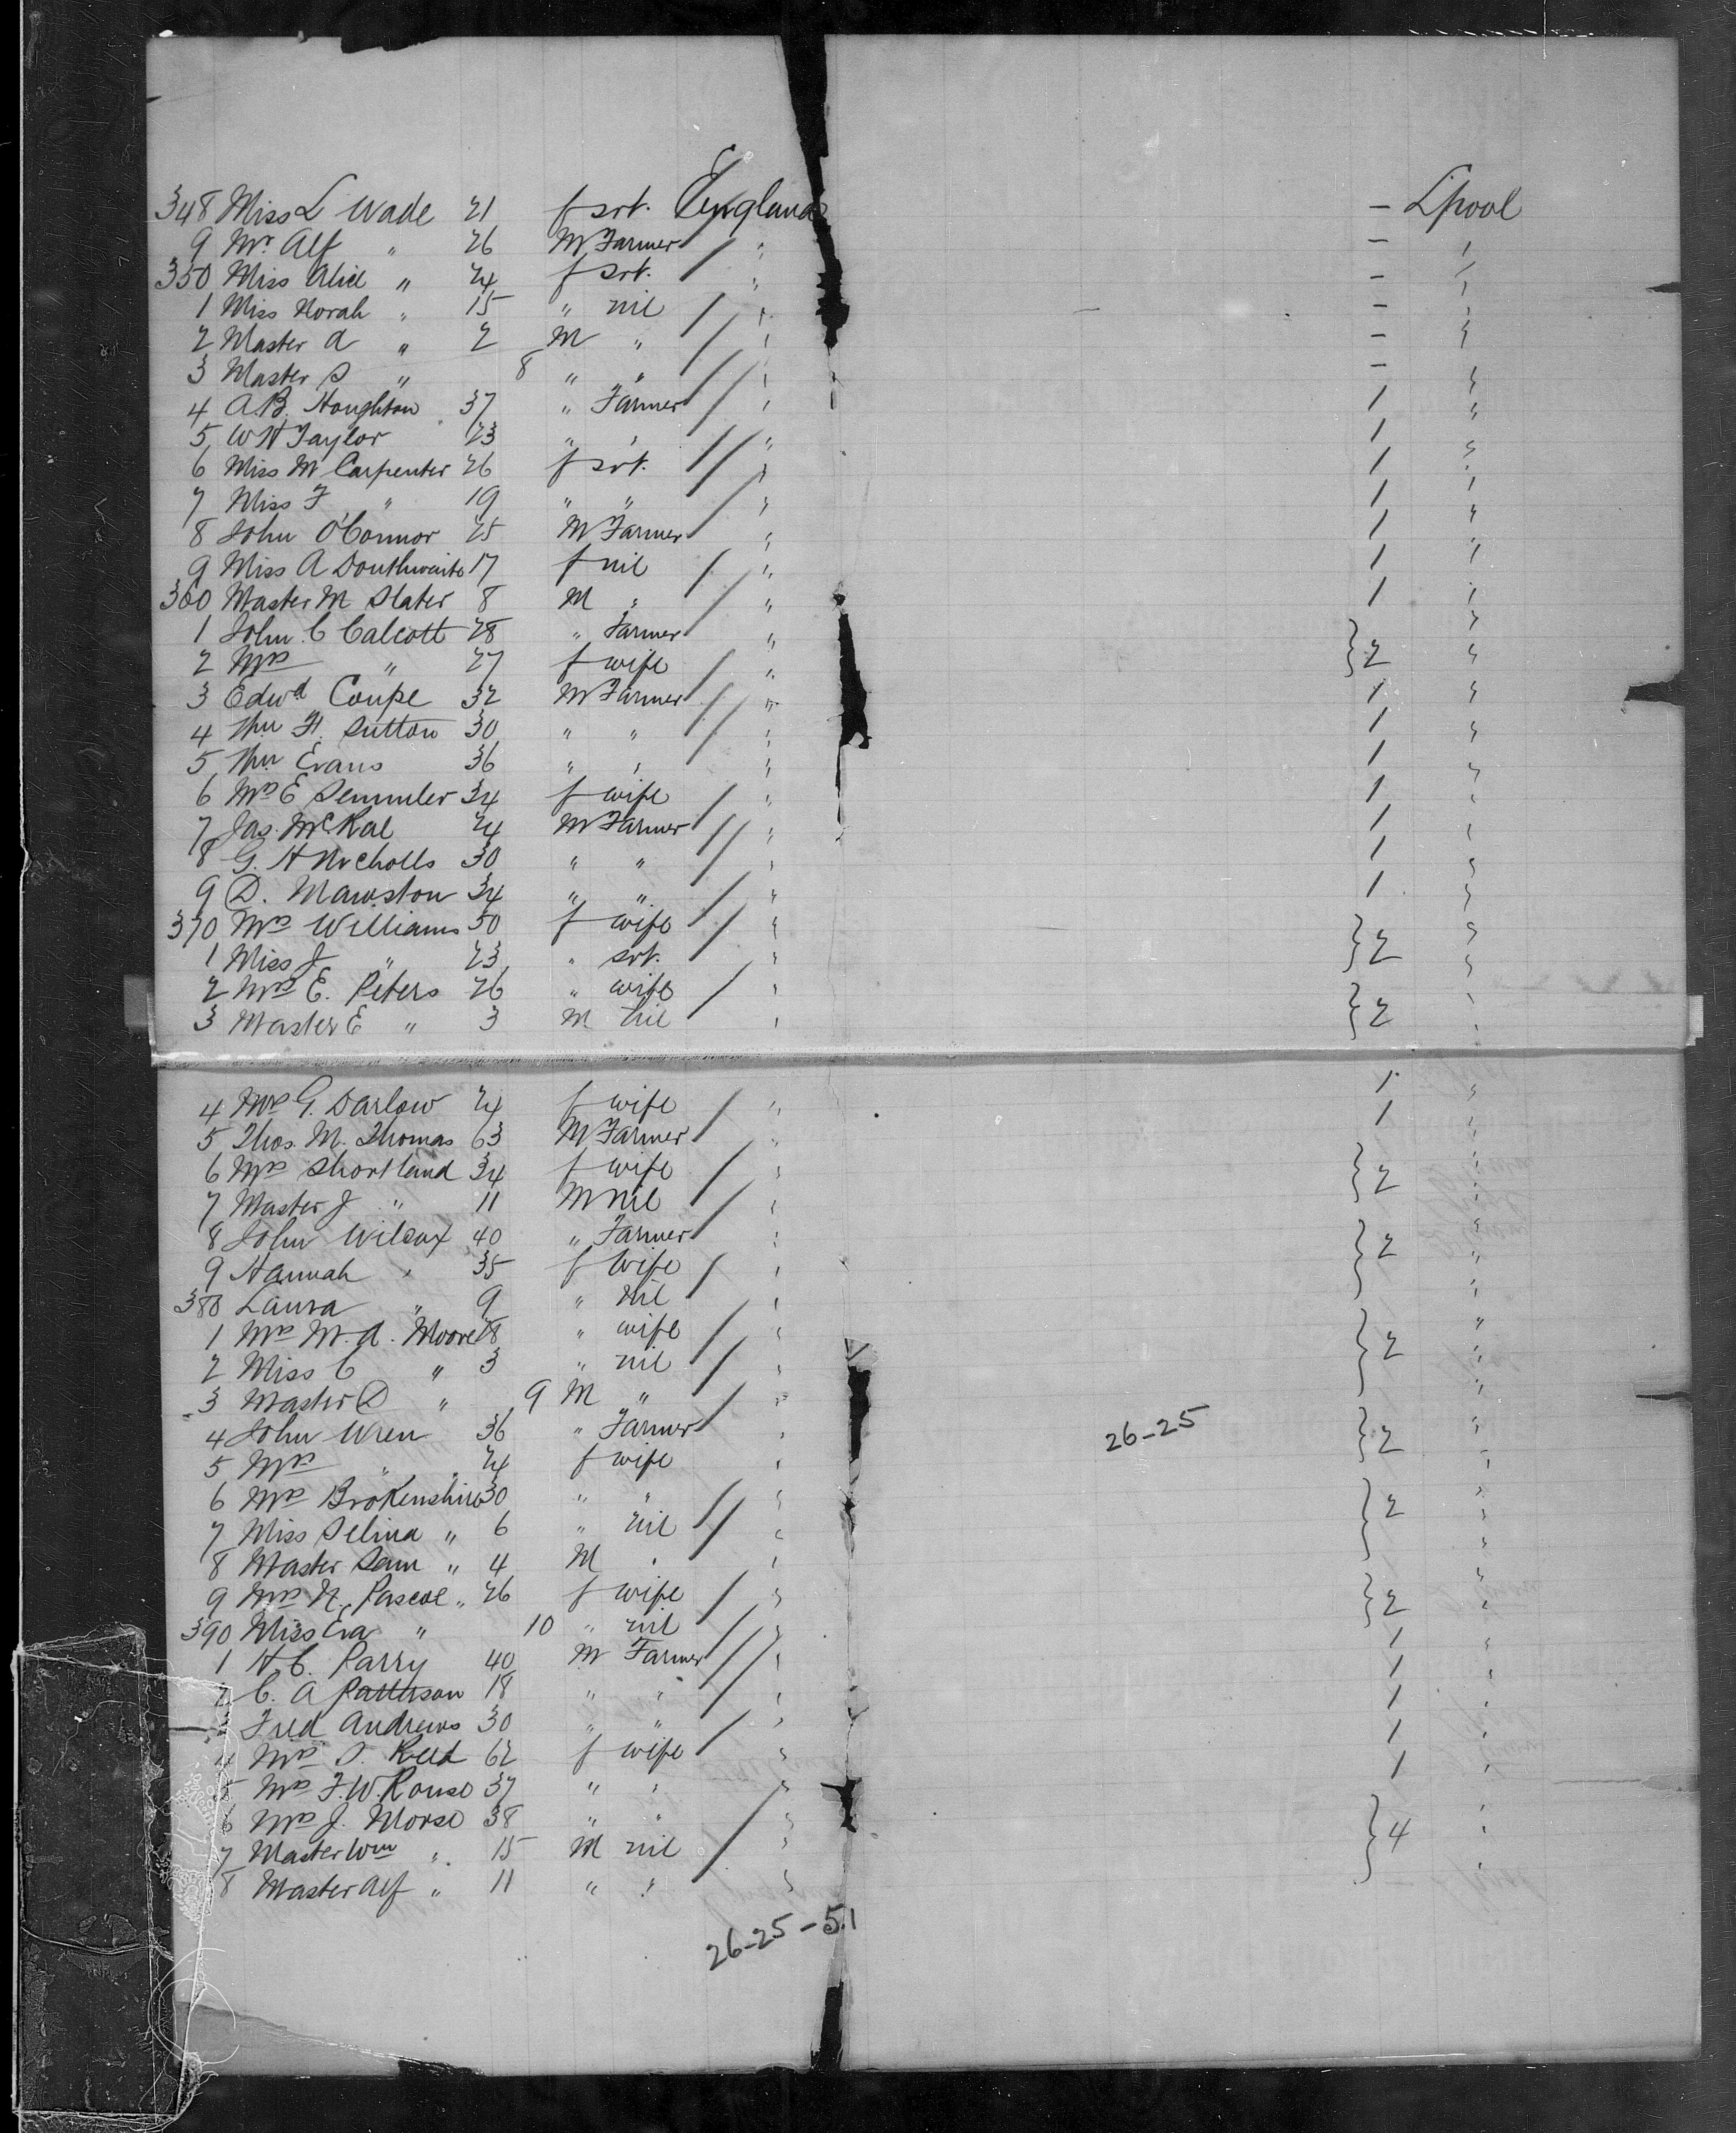 348 Miss L Wade 21 f srt. England - Lpool
9 Mr. Alf " 26 M Farmer / " - "
350 Miss Alice " 24 f srt. / " - "
1 Miss Norah " 15 " nil / " - "
2 Master A " 2 M " / " - "
3 Master S " 8 " " / " - "
4 A.B. Houghton 37 " Farmer / " 1 "
5 W H Taylor 23 " " / " 1 "
6 Miss M Carpenter 26 f srt. / " 1 "
7 Miss F " 19 " " / " 1 "
8 John O'Connor 25 M Farmer / " 1 "
9 Miss A Douthwaite 17 f nil / " 1 "
360 Master M Slater 8 M " / " 1 "
1 John C Calcott 28 " Farmer " "
2 Mrs " 27 f wife / " } 2 "
3 Edwd Coupe 32 M Farmer / " 1 "
4 Wm H. Sutton 30 " " / " 1 "
5 Wm Evans 36 " " / " 1 "
6 Mrs E Semmler 34 f wife / " 1 "
7 Jas. McRae 24 M Farmer / " 1 "
8 G. H Nicholls 30 " " / " 1 "
9 D. Mawston 34 " " / " 1 "
370 Mrs Williams 50 f wife / " } 2 "
1 Miss J " 23 " srt. / " "
2 Mrs E. Peters 26 " wife / " } 2 "
3 Master E " 3 M nil " "
4 Mrs G. Darlow 24 f wife / " 1 "
5 Thos. M. Thomas 63 M Farmer / " 1 "
6 Mrs Shortland 34 f wife / " } 2 "
7 Master J " 11 M nil / " "
8 John Wilcox 40 " Farmer / " } 2 "
9 Hannah " 35 f wife / " "
380 Laura " 9 " nil / " "
1 Mrs M. A. Moore 28 " wife / " } 2 "
2 Miss C " 3 " nil / " "
3 Master D " 9 M " / " "
4 John Wren 36 " Farmer / " 26-25 } 2 "
5 Mrs " 24 f wife " "
6 Mrs Brokenshire 30 " " / " } 2 "
7 Miss Selina " 6 " nil / " "
8 Master Sam " 4 M " " "
9 Mrs N. Pascoe " 26 f wife / " } 2 "
390 Miss Eva " 10 " nil / " "
1 H.C. Parry 40 M Farmer / " 1 "
2 C. A Patterson 18 " " / " 1 "
3 Fred Andrews 30 " " / " 1 "
4 Mrs S. Reed 62 f wife / " 1 "
5 Mrs F.W. Rouse 37 " " " 1 "
6 Mrs J. Morse 38 " " / " } 4 "
7 Master Wm " 15 M nil / " "
8 Master Alf " 11 " " " "
26-25-51